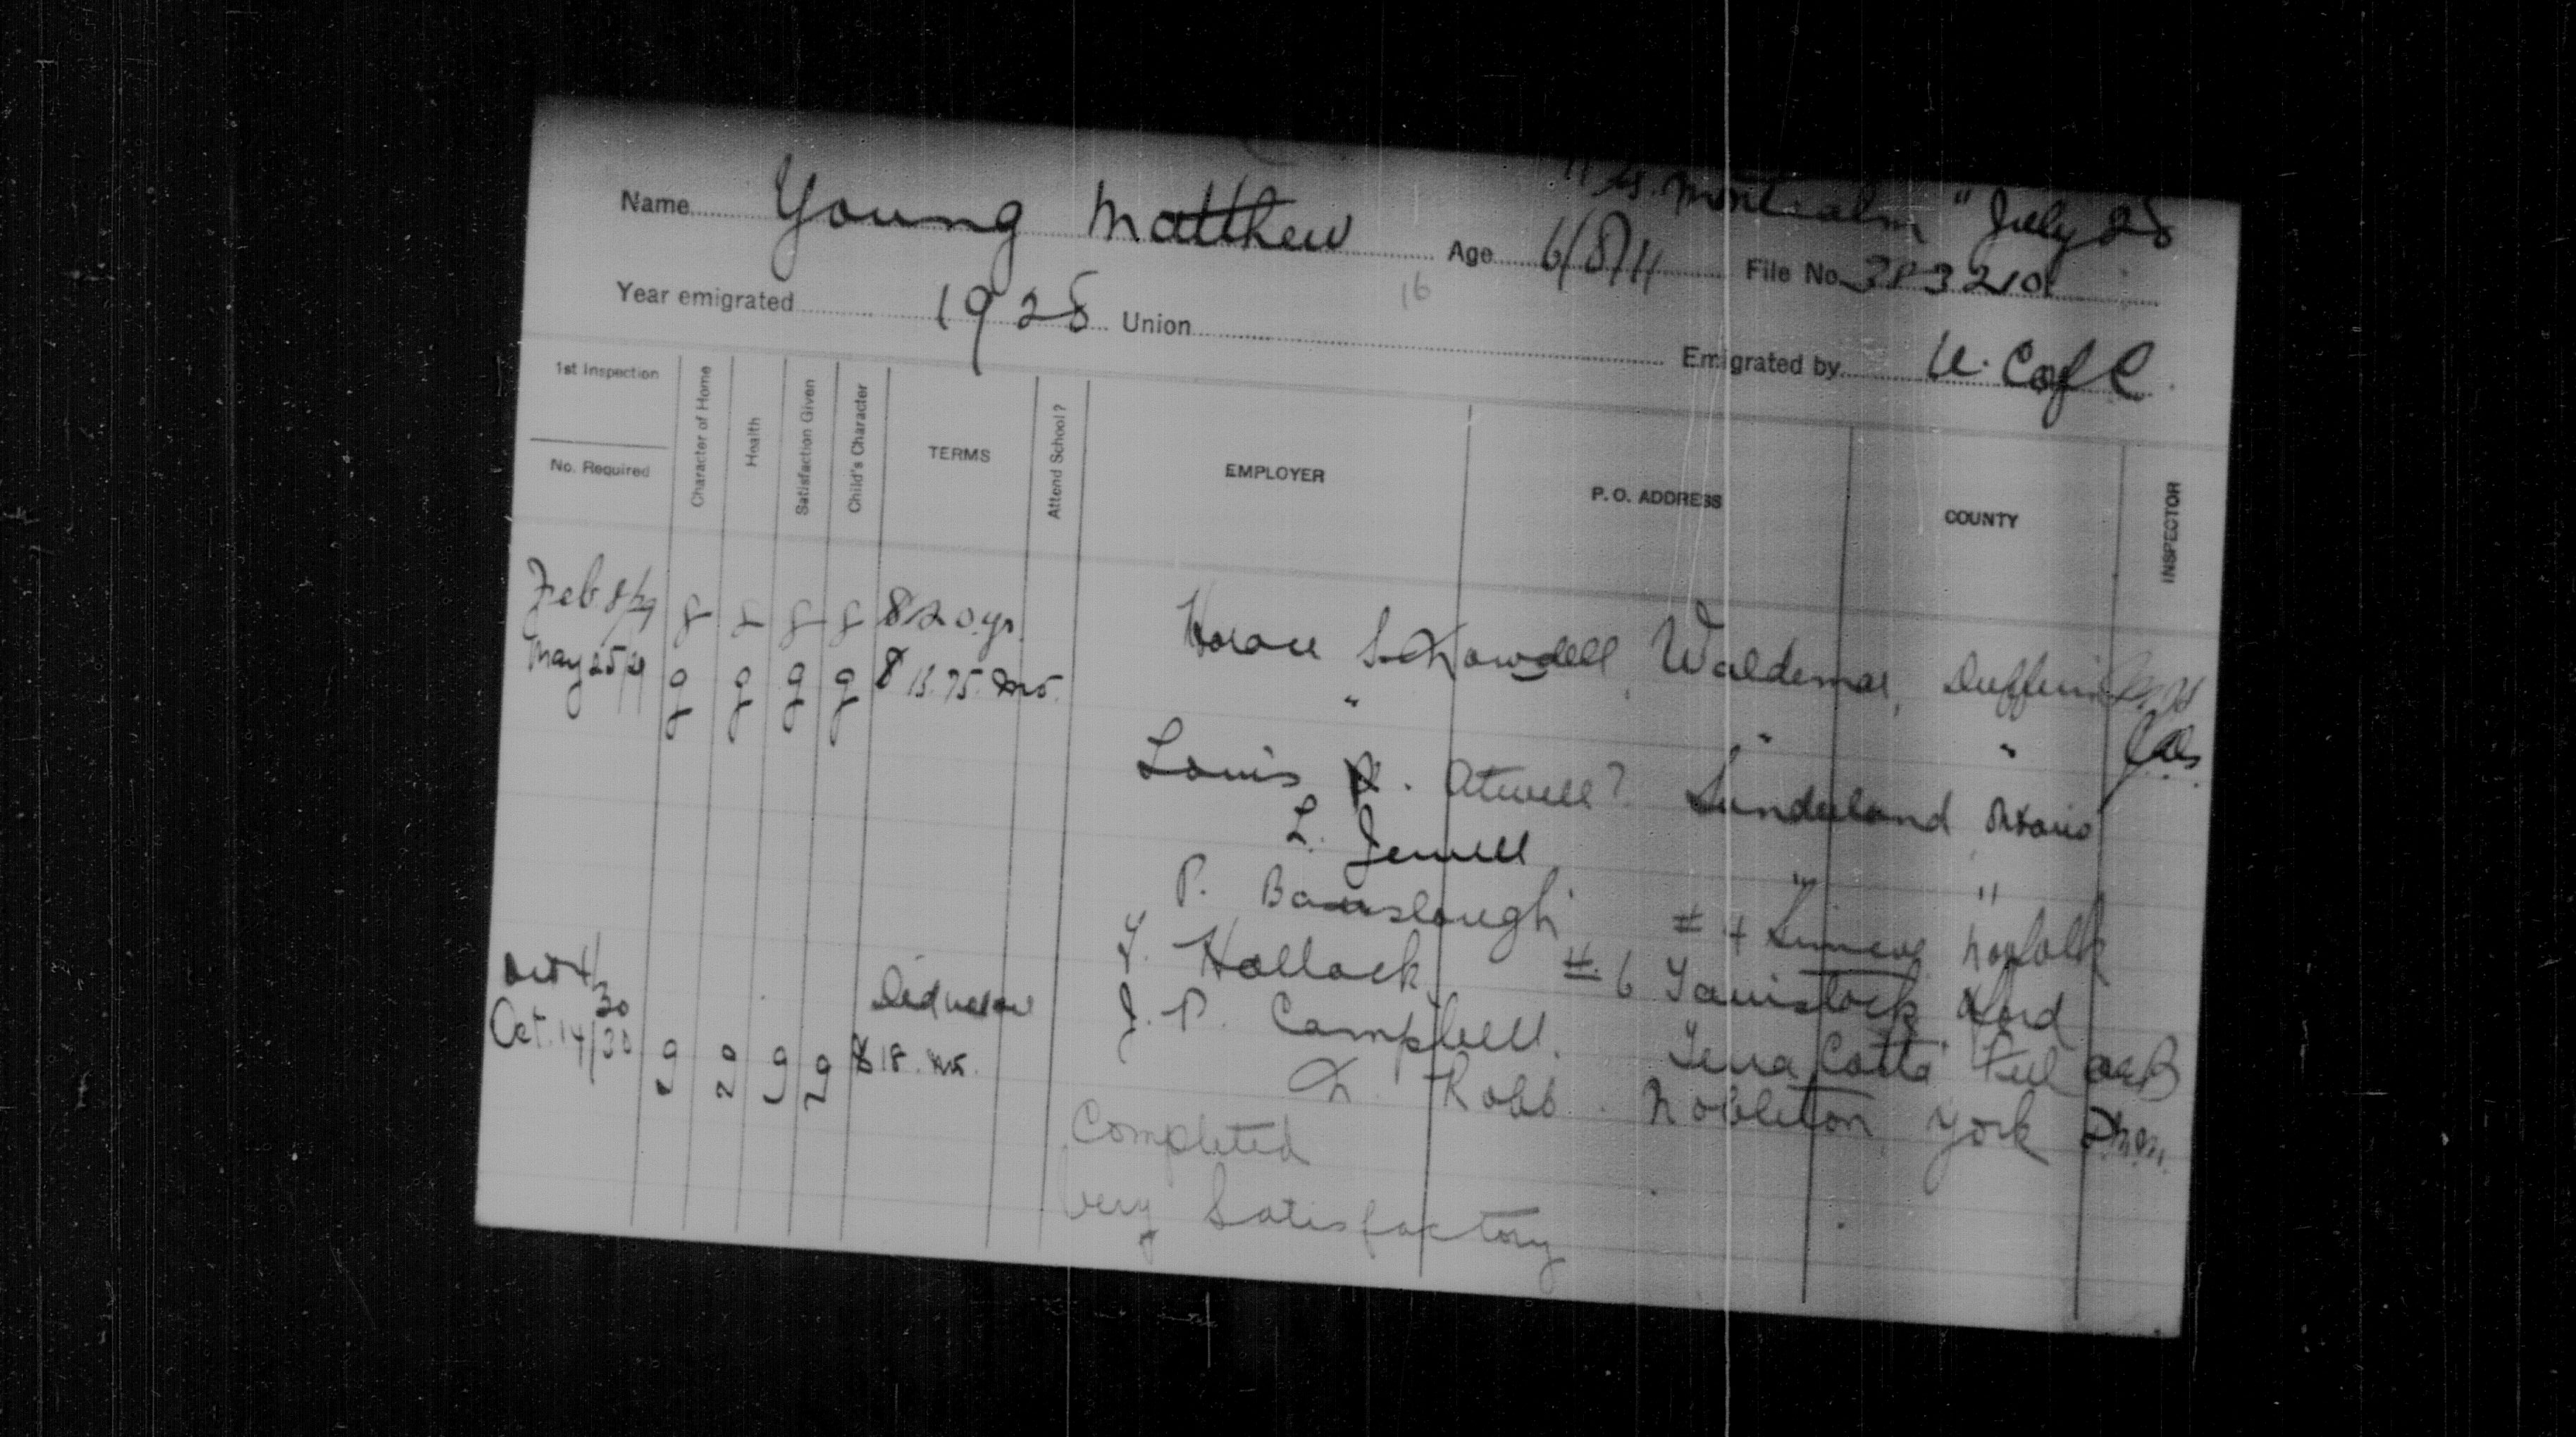 "SS. Montcalm" July 28
Name Young Matthew Age 6/8/11 File No. 383210
16
Year emigrated 1928 Union Emigrated by U. C of C.
1st Inspection
No. Required
Character of Home
Health
Satisfaction Given
Child's Character
TERMS
Attend School?
EMPLOYER
P. O. ADDRESS
COUNTY
INSPECTOR
Feb 8/29 g g g g $120 yr. Horace S. Waldemar, Dufferin
May 25/29 g g g g $13.75 mo. " " "
Louis Atwell? Sunderland Ontario
L. Jewell " "
P. Barnslaugh # 4 Simcoe Norfolk
Hallock # 6 Tavistock Oxford
Oct 4/30 Did not see J. P. Campbell. Terra Cotta Peel
Oct. 14/30 g g g g $18. mo. Robb. Nobleton York
Completed
Very Satisfactory